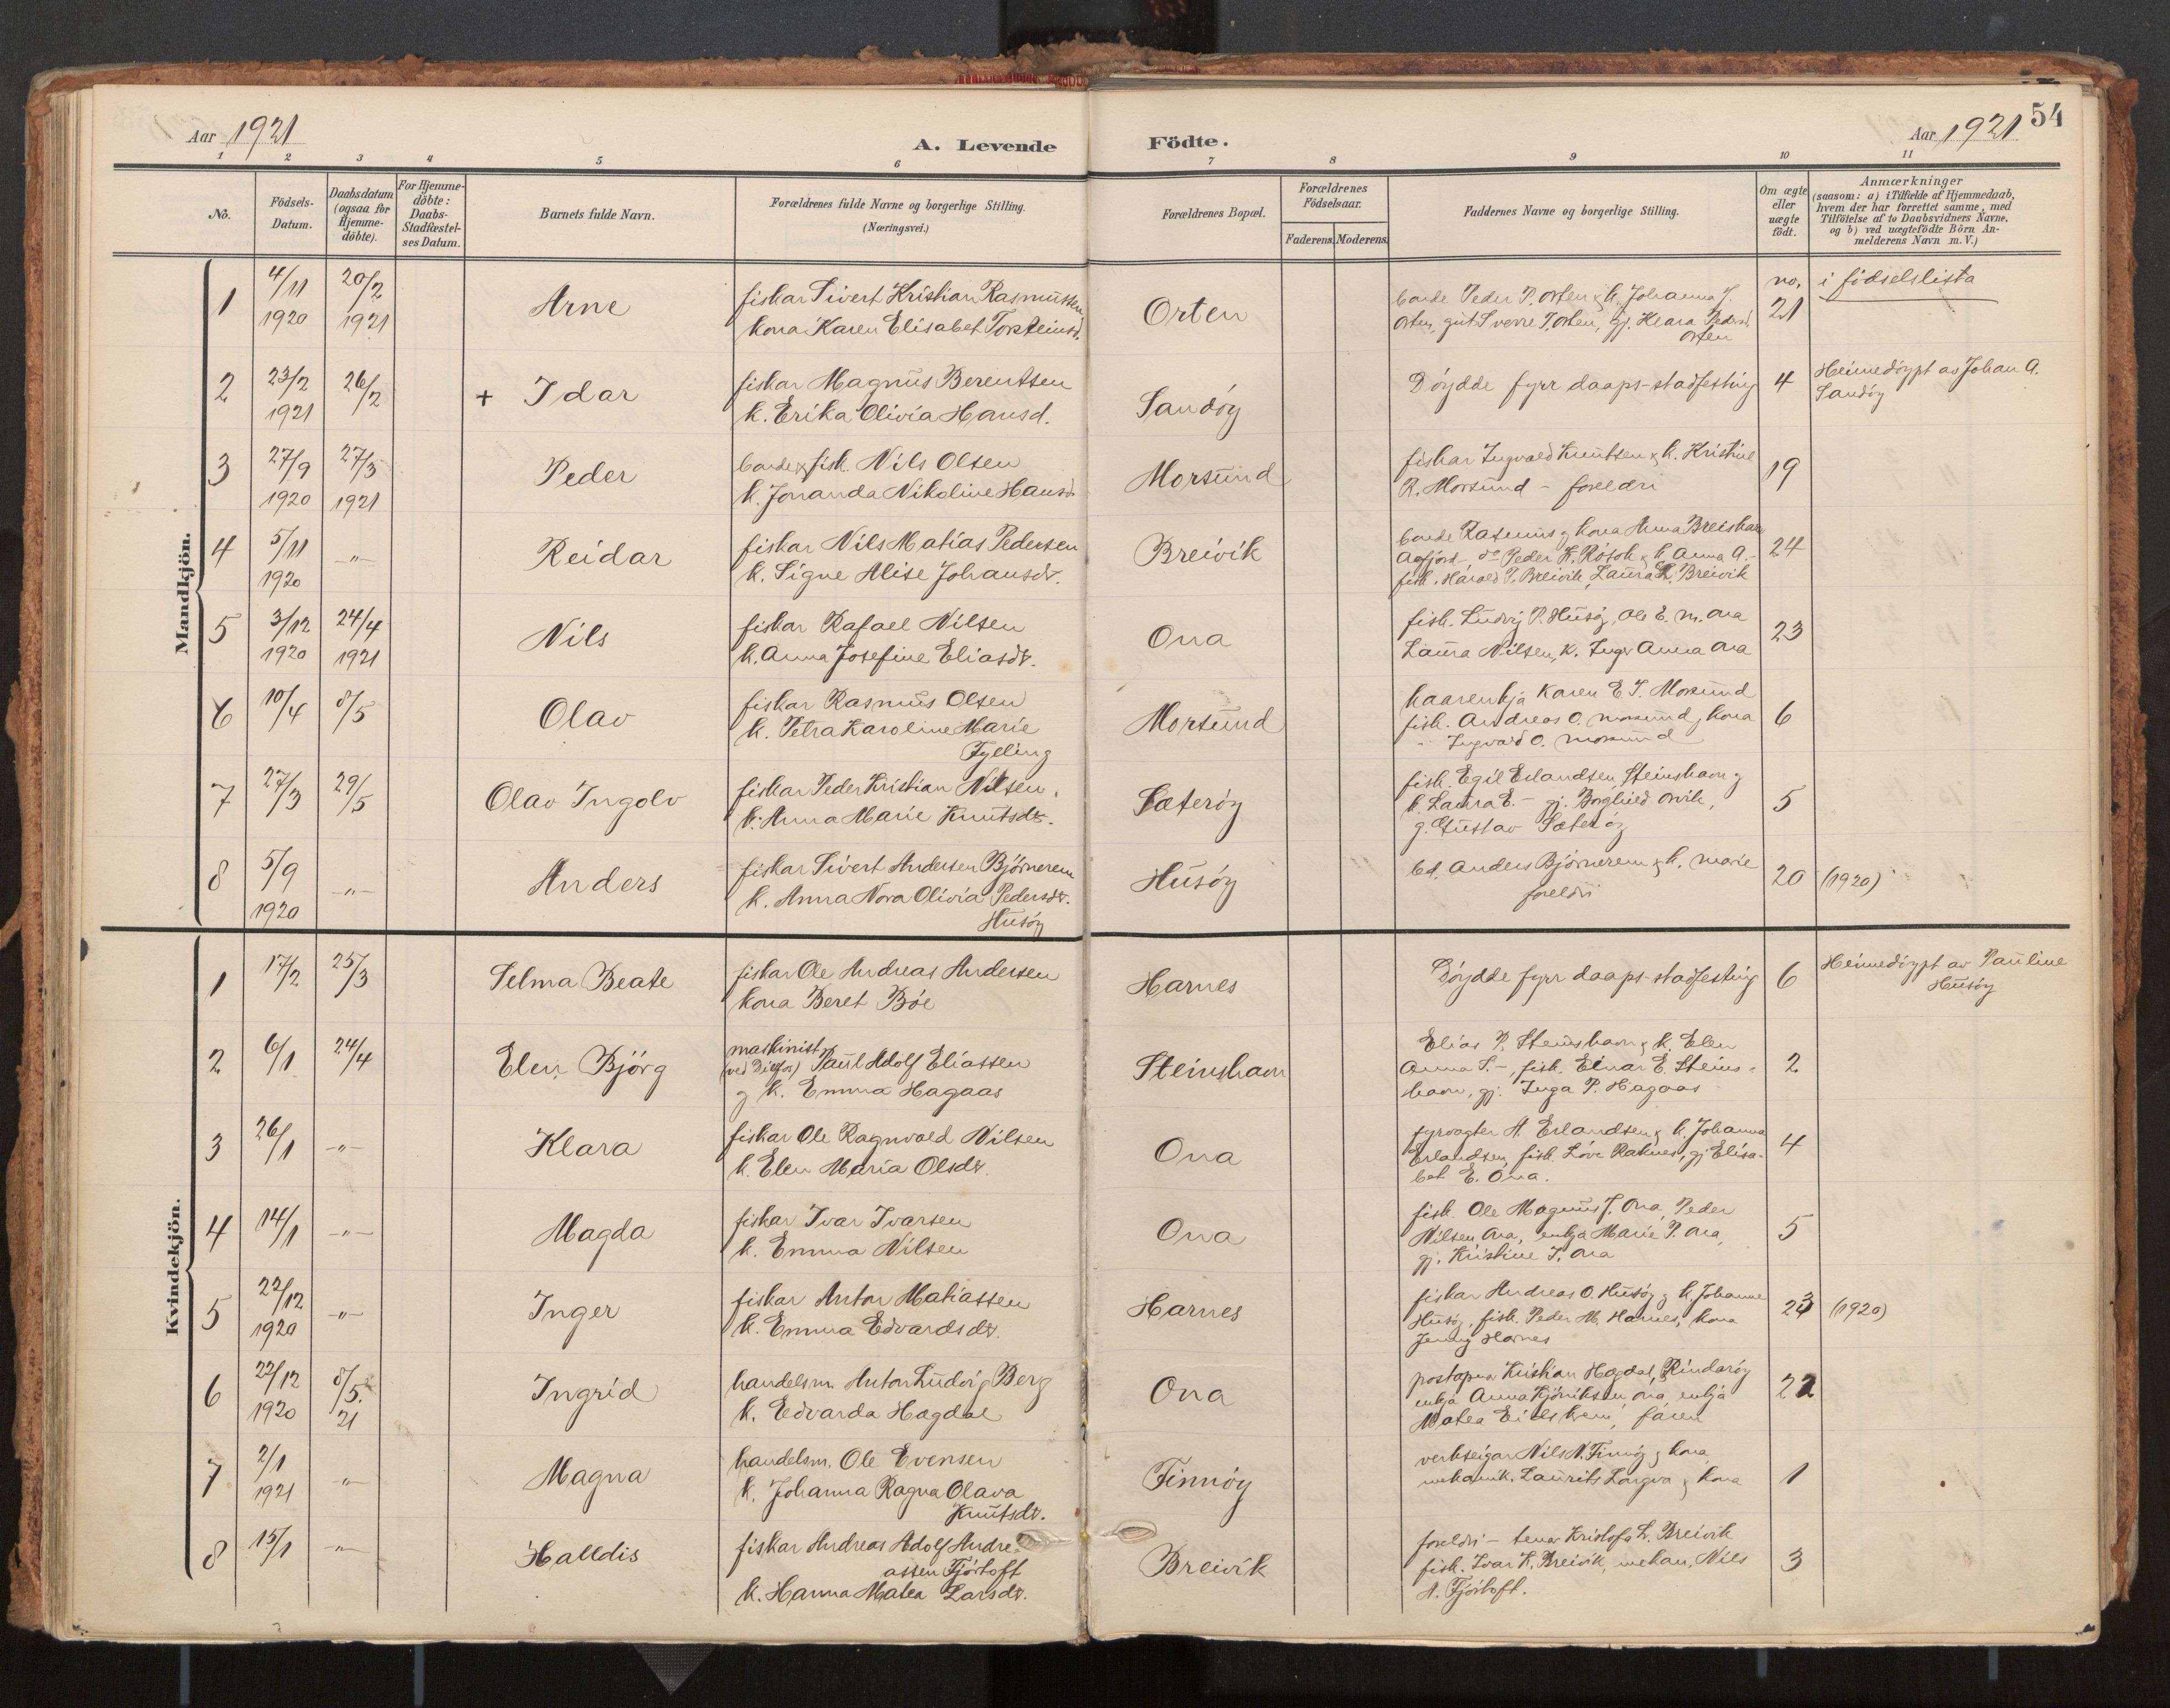 Aar 1921
A. Levende
Födte.
Aar 1921
54
1 2 3 4 5 6 7 8 9 10 11
No.
Födsels-
Datum.
Daabsdatum
(ogsaa for
Hjemme-
döbte).
For Hjemme-
döbte:
Daabs-
Stadfæstel-
ses Datum.
Barnets fulde Navn.
Forældrenes fulde Navne og borgerlige Stilling.
(Næringsvei.)
Forældrenes Bopæl.
Forældrenes
Födselsaar.
Faderens. Moderens.
Faddernes Navne og borgerlige Stilling.
Om ægte
eller
uægte
födt.
Anmærkninger
(saasom: a) i Tilfælde af Hjemmedaab,
hvem der har forrettet samme, med
Tilföielse af to Daabsvidners Navne,
og b) ved uægtefödte Börn An-
melderens Navn m. V.)
Mandkjön.
1
4/11
1920
20/2
1921
Arne
fiskar Sivert Kristian Rasmussen
kona Karen Elisabet Torsteinsd.
Orten
bonde Peder P. Orten & k. Johanna J.
Orten, gut Sverre T. Orten, gj. Klara Pedersd.
Orten
no.
21
i födselslista
2
23/2
1921
26/2
+ Idar
fiskar Magnus Berentsen
k. Erika Olivia Hansd.
Sandöy
Döydde fyrr daaps-stadfesting
4
Heimedöypt av Johan A.
Sandöy
3
27/9
1920
27/3
1921
Peder
bonde & fisk. Nils Olsen
k. Jonanda Nikoline Hansd.
Morsund
fiskar Ingvald Knutsen & k. Kristine
R. Morsund - foreldri
19
4
5/11
1920
-"-
Reidar
fiskar Nils Matias Pedersen
k. Signe Alise Johansdt.
Breivik
bonde Rasmus g kona Anna
Peder K. k. Anna A. -
fisk. Harald P. Breivik, Laura L. Breivik
24
5
3/12
1920
24/4
1921
Nils
fiskar Rafael Nilsen
k. Anna Josefine Eliasdt.
Ona
fisk. Ludvig P. Husöy, Ole E. M. Ona
Laura Nilsen, k. Inger Anna Ona
23
6
10/4
8/5
Olav
fiskar Rasmus Olsen
k. Petra Karoline Marie
Fylling
Morsund
Karen E. T. Morsund
fisk. Andreas O. Morsund g kona
" Ingvald O. Morsund
6
7
27/3
29/5
Olav Ingolv
fiskar Peder Kristian Nilsen,
k. Anna Marie Knutsdt.
Sæteröy
fisk. Egil Erlandsen, Steinshavn g
k. Laura E. - gj. Borghild Orvik,
g. Gustav Sæteröy
5
8
5/9
1920
-"-
Anders
fiskar Sivert Andersen Björnerem
k. Anna Nora Olivia Pedersdt.
Husöy
Husöy
bd. Anders Björnerem & k. Marie
foreldri
20
(1920)
Kvindekjön.
1
17/2
25/3
Selma Beate
fiskar Ole Andreas Andersen
kona Beret Böe
Harnes
Döydde fyrr daaps-stadfesting
6
Heimedöypt av Pauline
Husöy
2
6/1
24/4
Elen Björg
maskinist
Paul Adolf Eliassen
g k. Emma Hagaas
Steinshavn
Elias P. Steinshavn & k. Elen
Anna S. -, fisk. Einar E. Steins-
havn, gj. Inga P. Hagaas
2
3
26/1
-"-
Klara
fiskar Ole Ragnvald Nilsen
k. Elen Maria Olsdt.
Ona
fyrvagter A. Erlandsen & k. Johanna
Erlandsen, fisk. Löve Raknes, gj. Elisa-
bet E. Ona.
4
4
14/1
-"-
Magda
fiskar Ivar Ivarsen
k. Emma Nilsen
Ona
fisk. Ole Magnus J. Ona, Peder
Nilsen Ona, enkja Marie P. Ona,
gj. Kristine I. Ona
5
5
22/12
1920
-"-
Inger
fiskar Anton Matiassen
k. Emma Edvardsdt.
Harnes
fiskar Andreas O. Husöy g k. Johanne
Husöy, fisk. Peder M. Harnes, kona
Jenny Harnes
23
(1920)
6
22/12
1920
8/5.
21
Ingrid
handelsm. Anton Ludvig Berg
k. Edvarda Hagdal
Ona
Kristian Hagdal, Rindaröy
enkja Anna Ona, enkja
Matea faren
22
7
2/1
1921
-"-
Magna
handelsm. Ole Evensen
k. Johanna Ragna Olava
Knutsdt.
Finnöy
verkseigar Nils N. Finnöy g kona
mekanik. Laurits Longva g kona
1
8
15/1
-"-
Halldis
fiskar Andreas Adolf Andre-
assen Fjörtoft
k. Hanna Matea Larsdt.
Breivik
foreldri - Kristofa L. Breivik
fisk. Ivar K. Breivik, mekan. Nils
A. Fjörtoft.
3